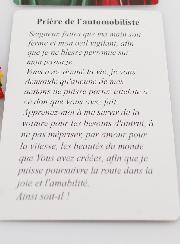 Prière de l'automobiliste
Seigneur, faites que ma main soit
ferme et mon oeil vigilant, afin
que je ne blesse personne sur
mon passage.
Vous avez donné la vie, je vous
demande qu'aucune de mes
actions ne puisse porter atteinte à
ce don que Vous avez fait.
Apprenez-moi à me servir de la
voiture pour les besoins d'autrui, à
ne pas mépriser, par amour pour
la vitesse, les beautés du monde
que Vous avez créées, afin que je
puisse poursuivre la route dans la
joie et l'amabilité.
Ainsi soit-il !